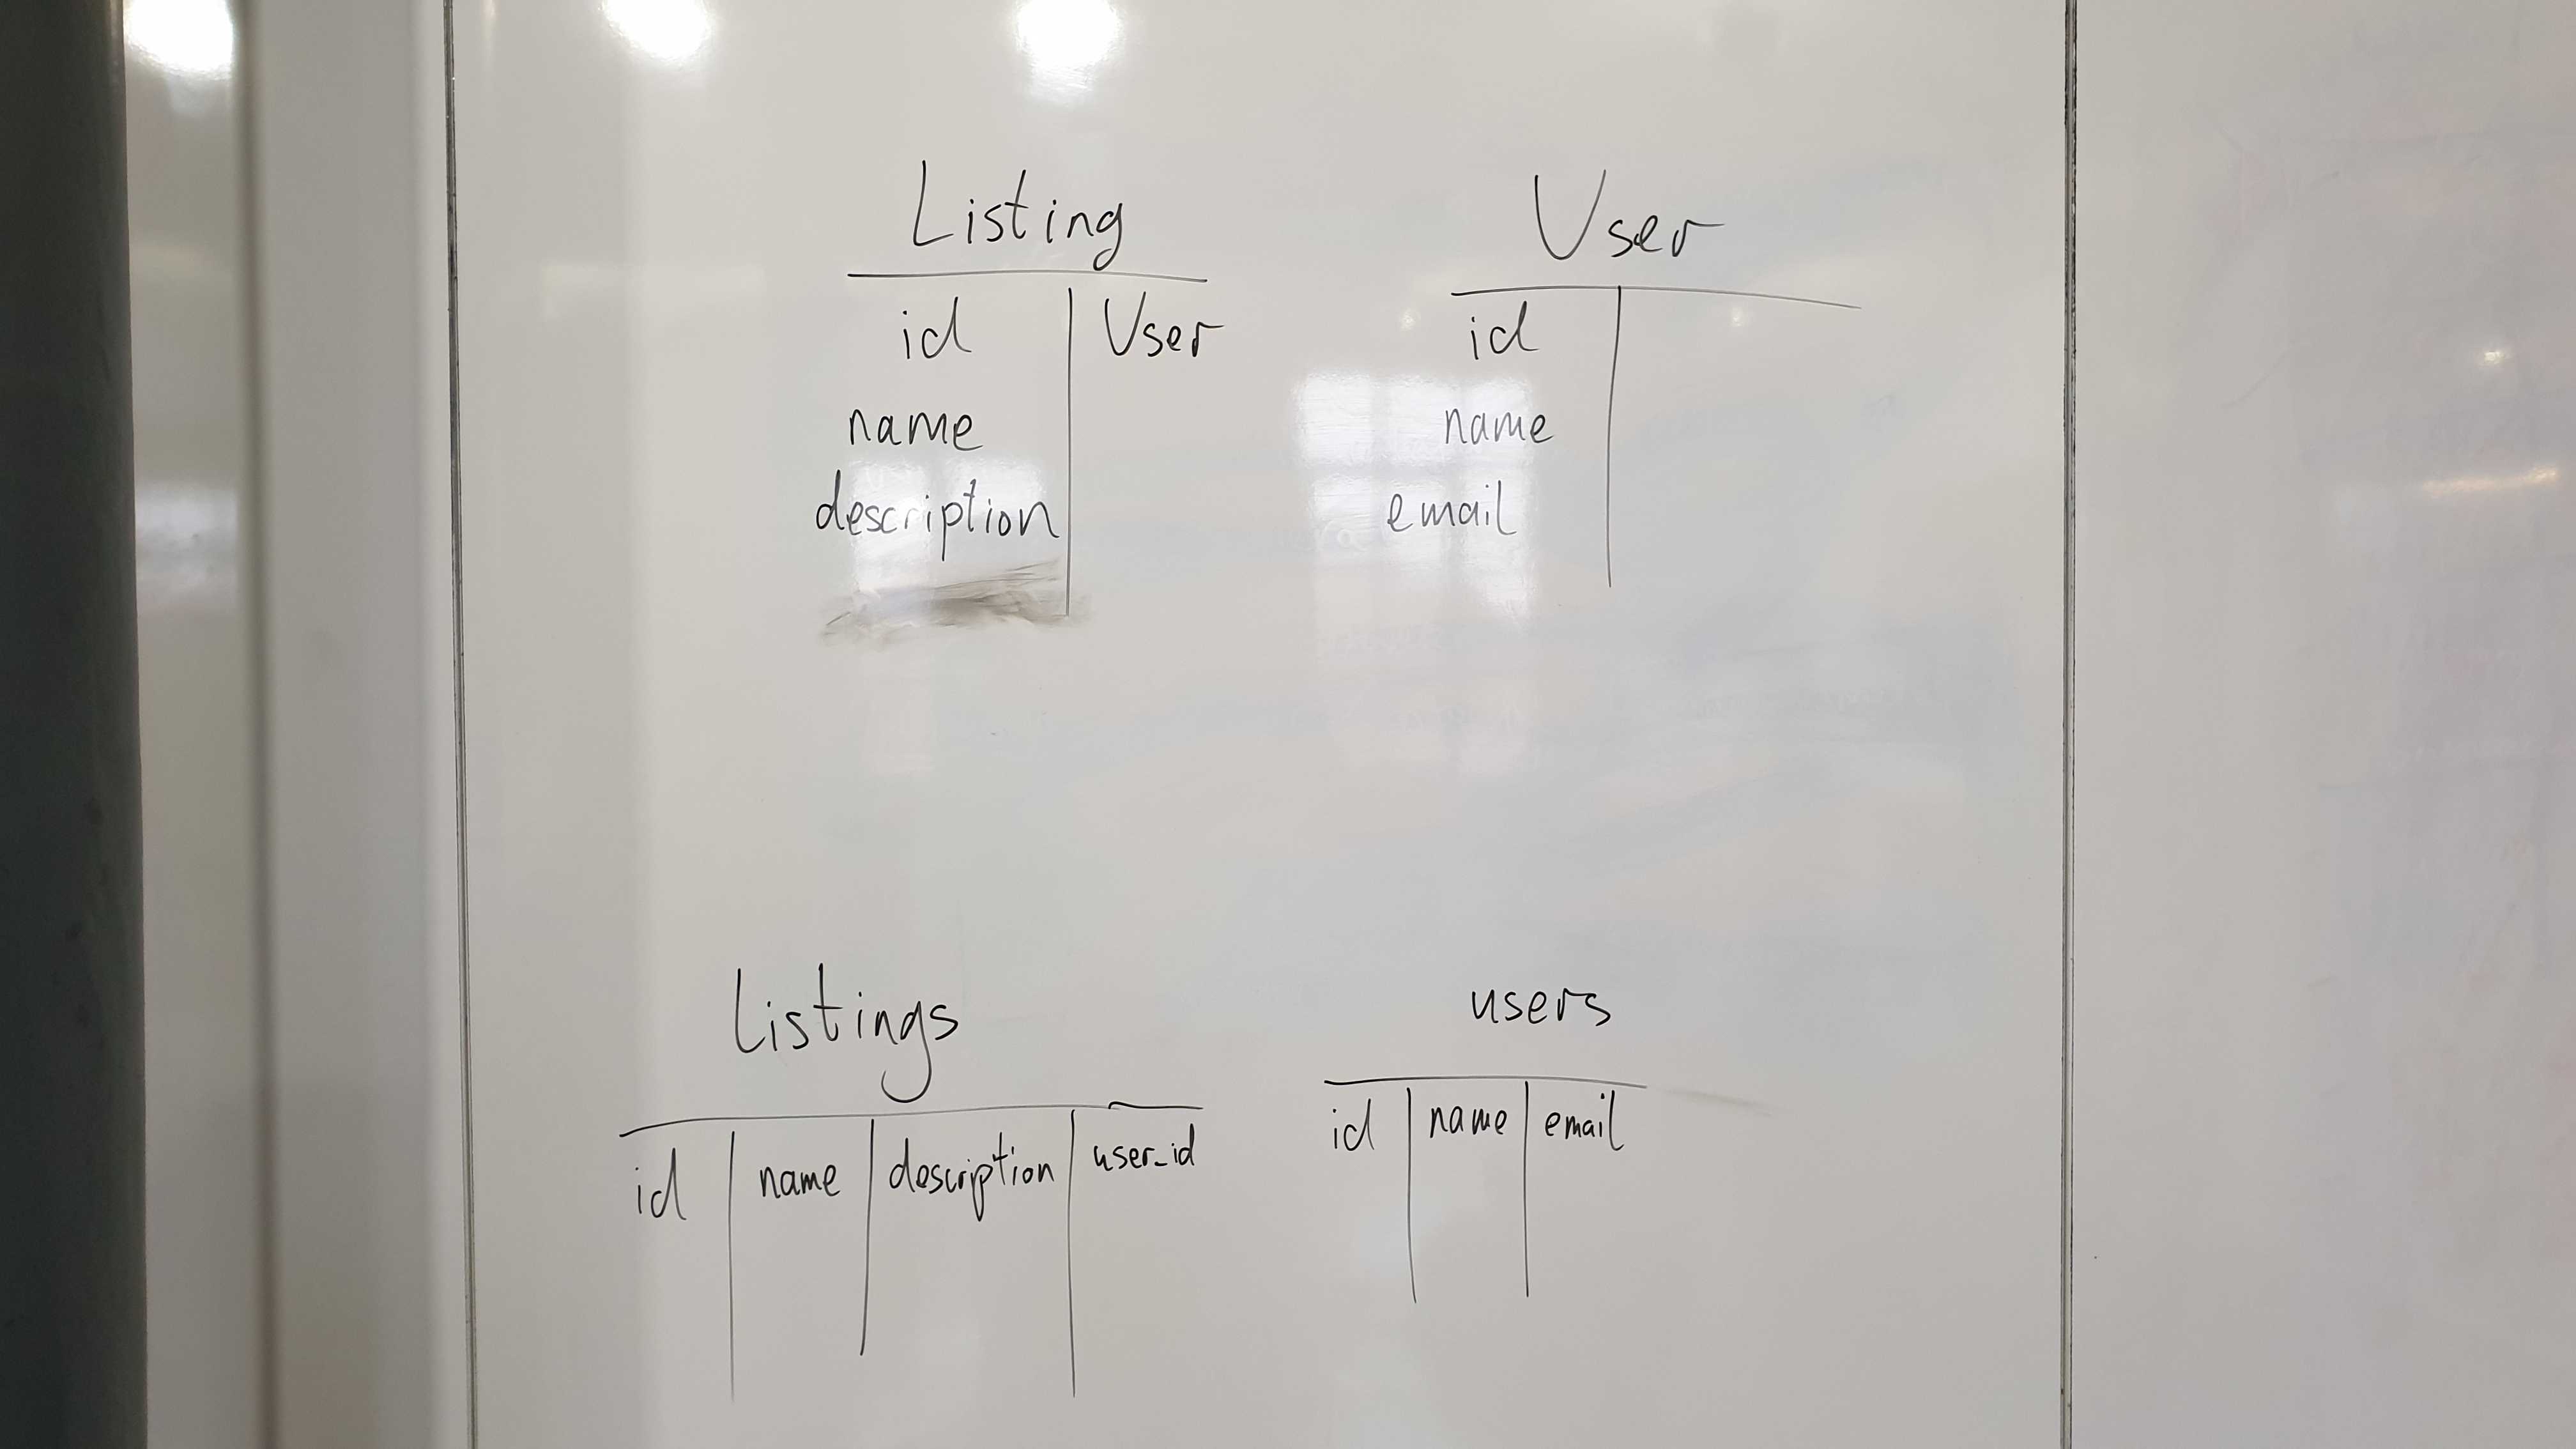 Listing
id User
name
description
User
id
name
email
Listings
id name description user_id
users
id name email